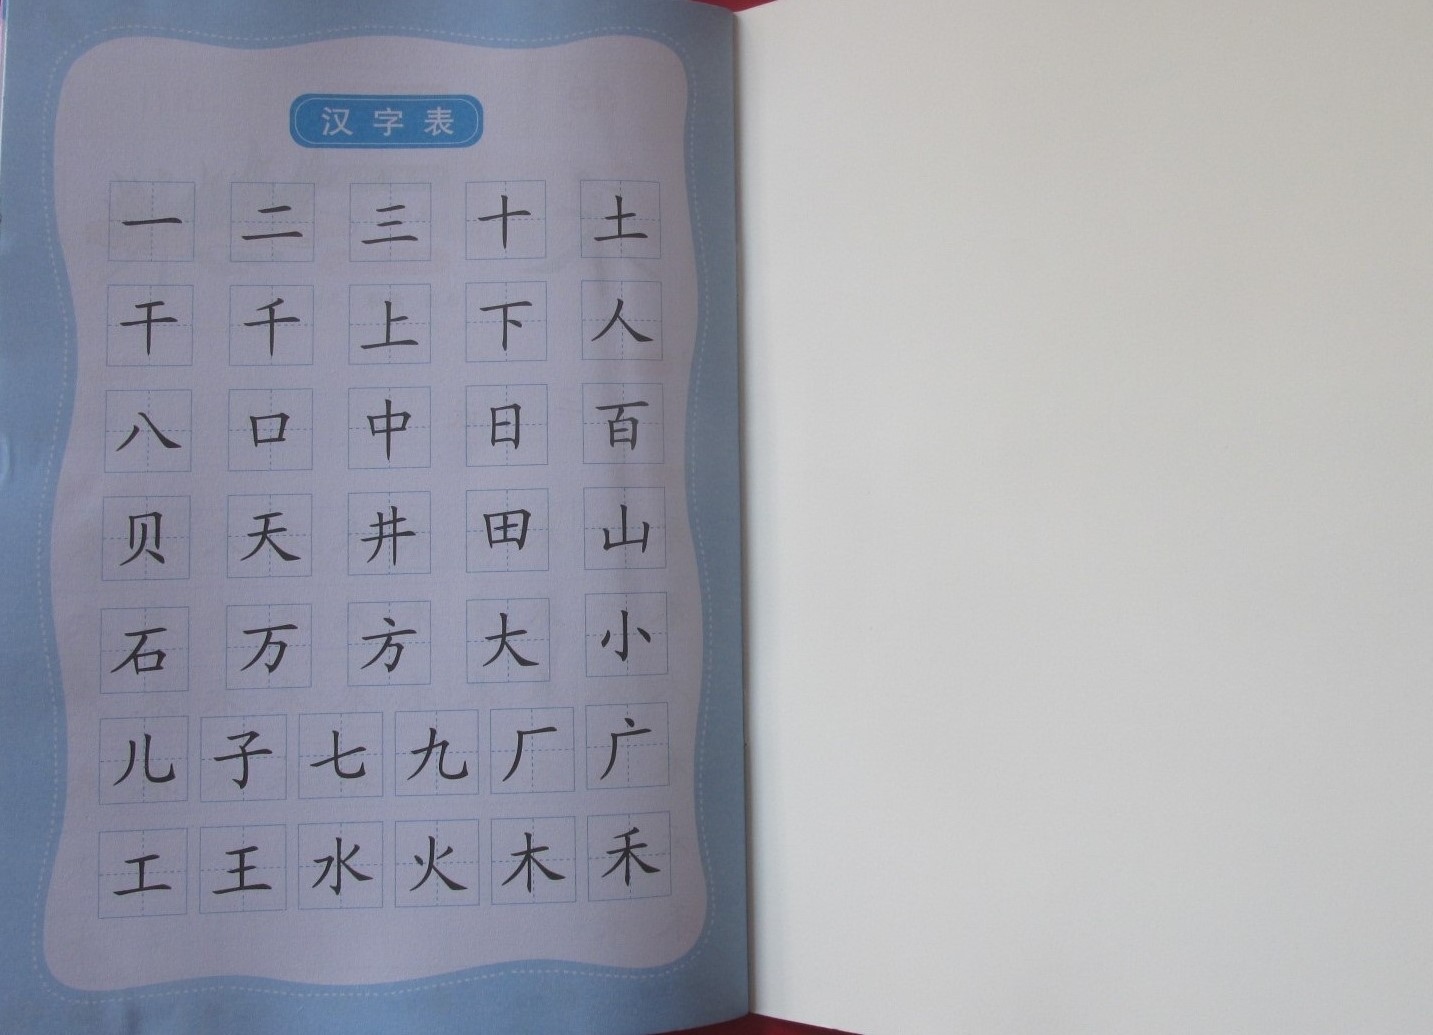 汉字表
一 二 三 十 土
干 千 上 下 人
八 口 中 日 百
贝 天 井 田 山
石 万 方 大 小
儿 子 七 九 厂 广
工 王 水 火 木 禾